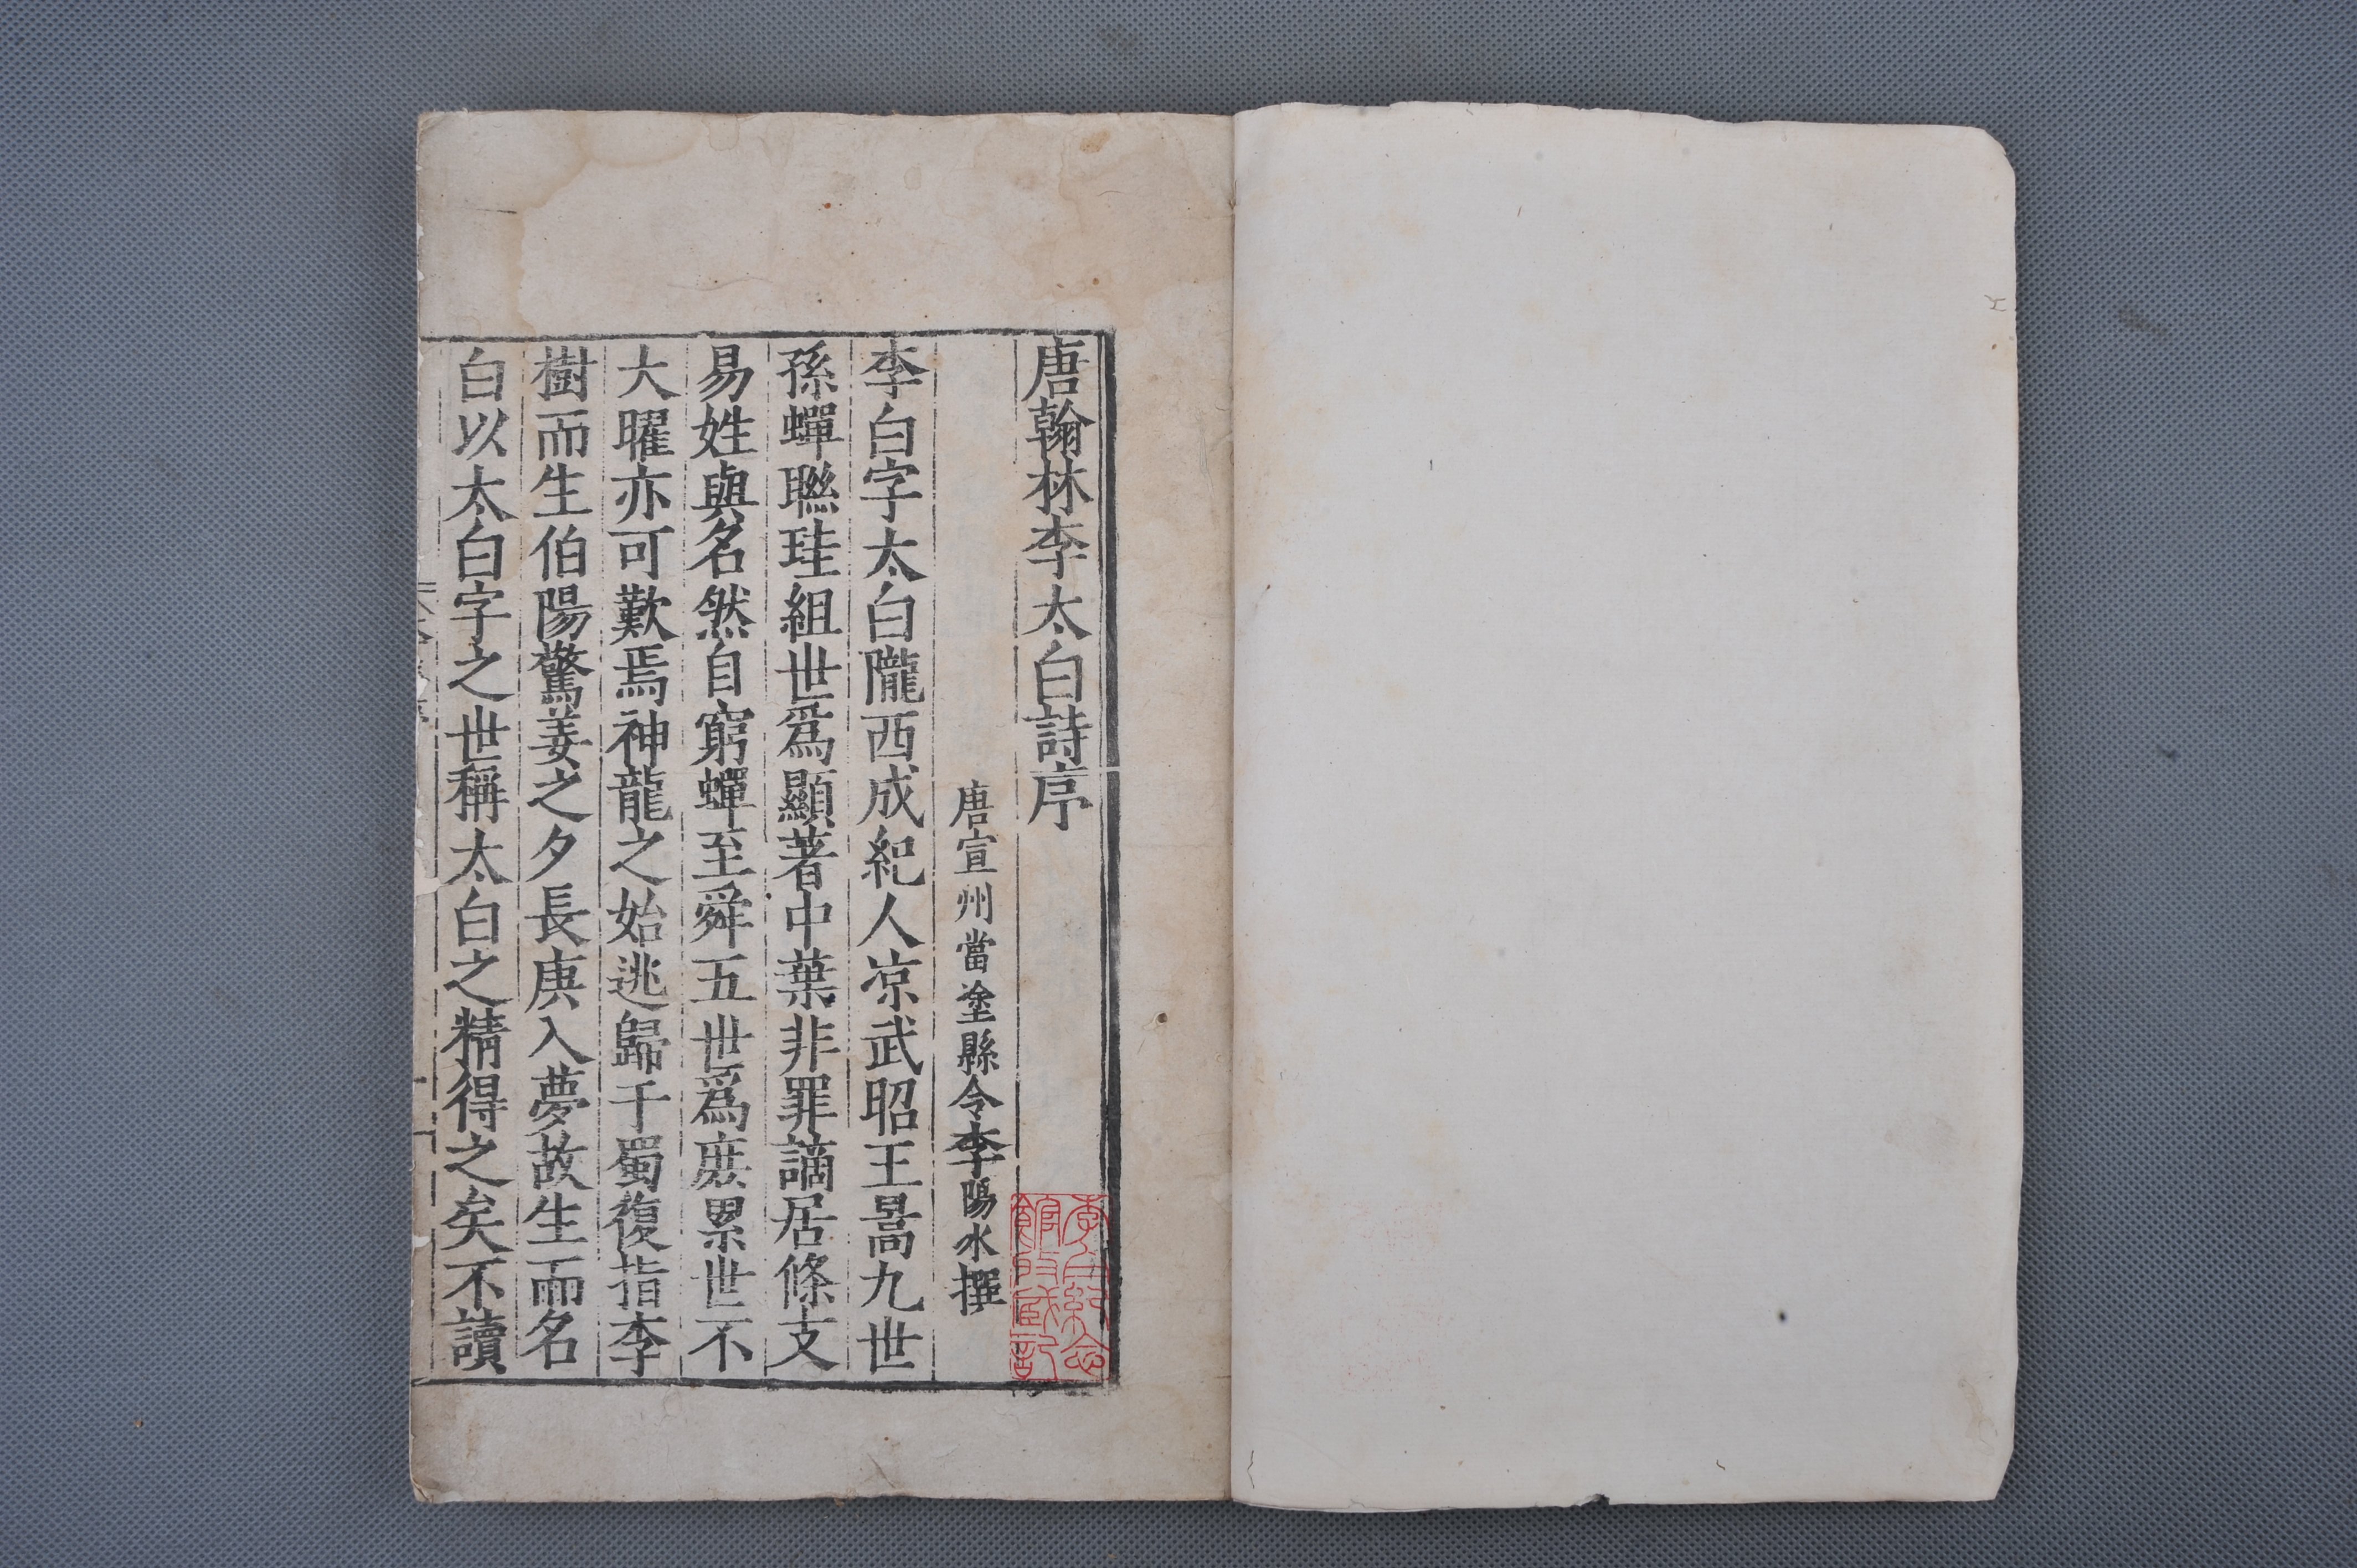 唐翰林李太白詩序
唐宣州當塗縣令李陽冰撰
李白字太白隴西成紀人凉武昭王暠九世
孫蟬聯珪組世爲顯著中葉非罪謫居條支
易姓與名然自窮蟬至舜五世爲庶累世不
大曜亦可歎焉神龍之始逃歸于蜀復指李
樹而生伯陽驚姜之夕長庚入夢故生而名
白以太白字之世稱太白之精得之矣不讀
李白紀念
館所藏記